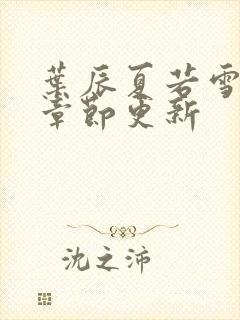 葉辰夏若雪
章節更新
沈之沛